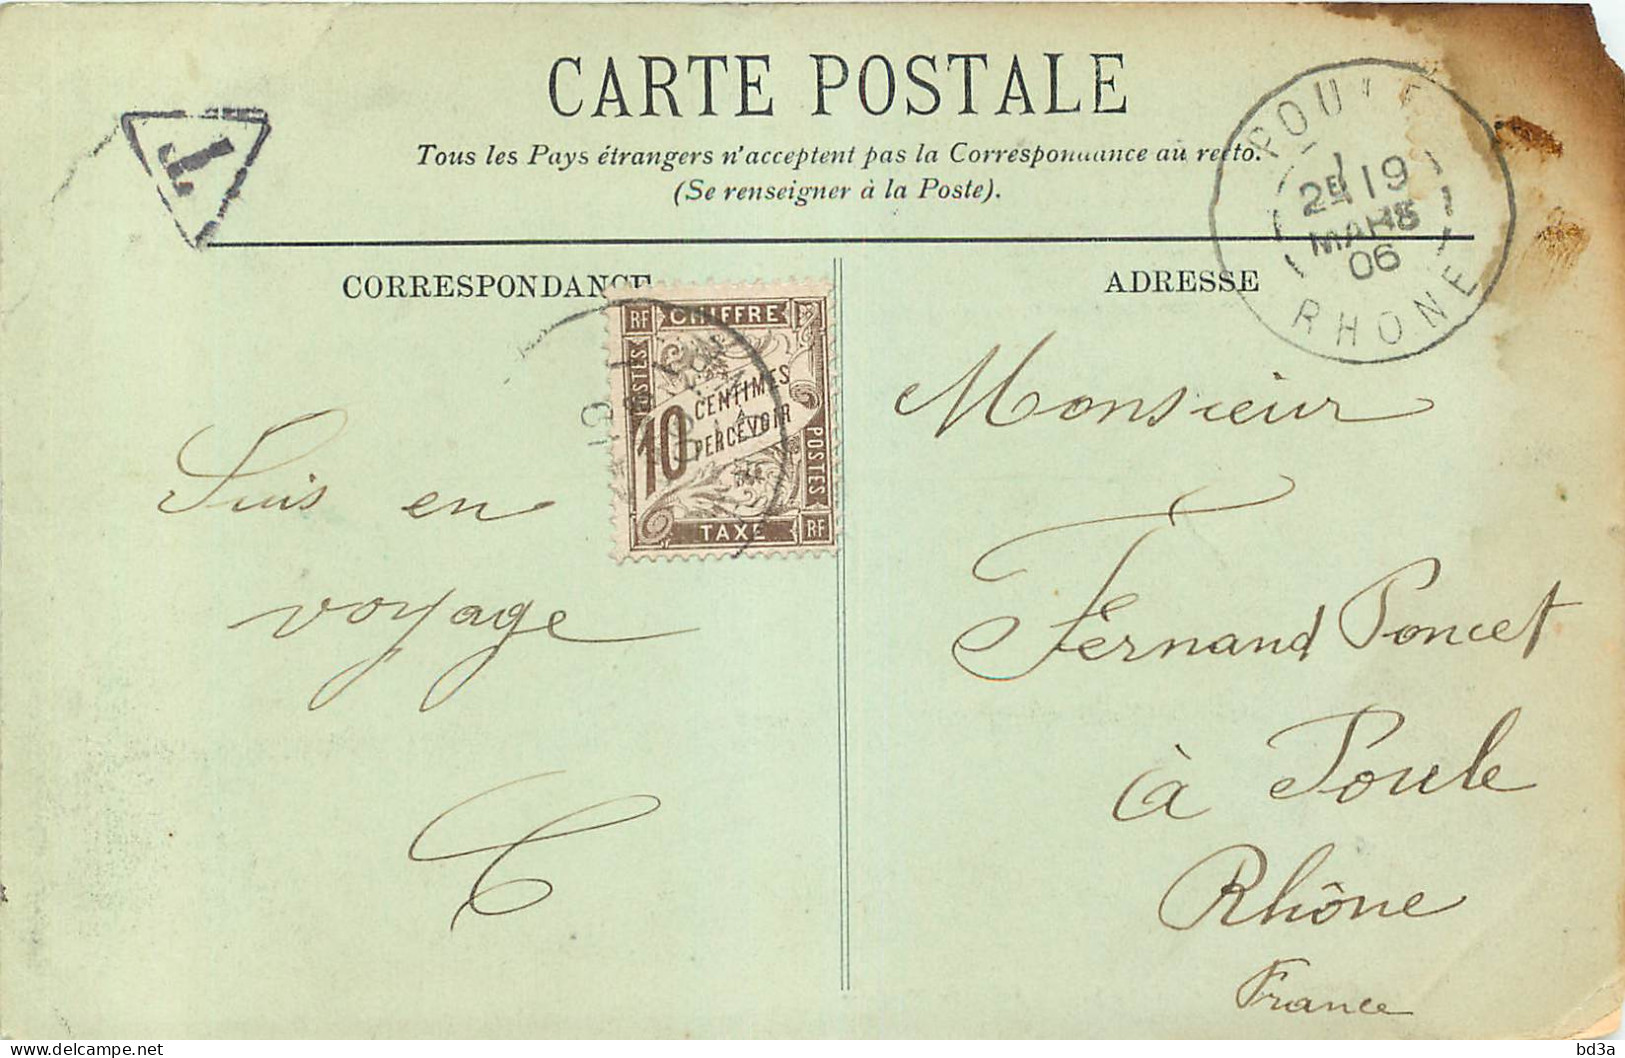 CARTE POSTALE
Tous les Pays étrangers n'acceptent pas la Correspondance au recto.
(Se renseigner à la Poste).
T
POULE
2E 19
MARS
06
RHONE
CORRESPONDANCE
ADRESSE
RF CHIFFRE
POSTES
10 CENTIMES
À
PERCEVOIR
POSTES
TAXE RF
19
Suis en
voyage
C
Monsieur
Fernand Poncet
à Poule
Rhône
France
bd3a